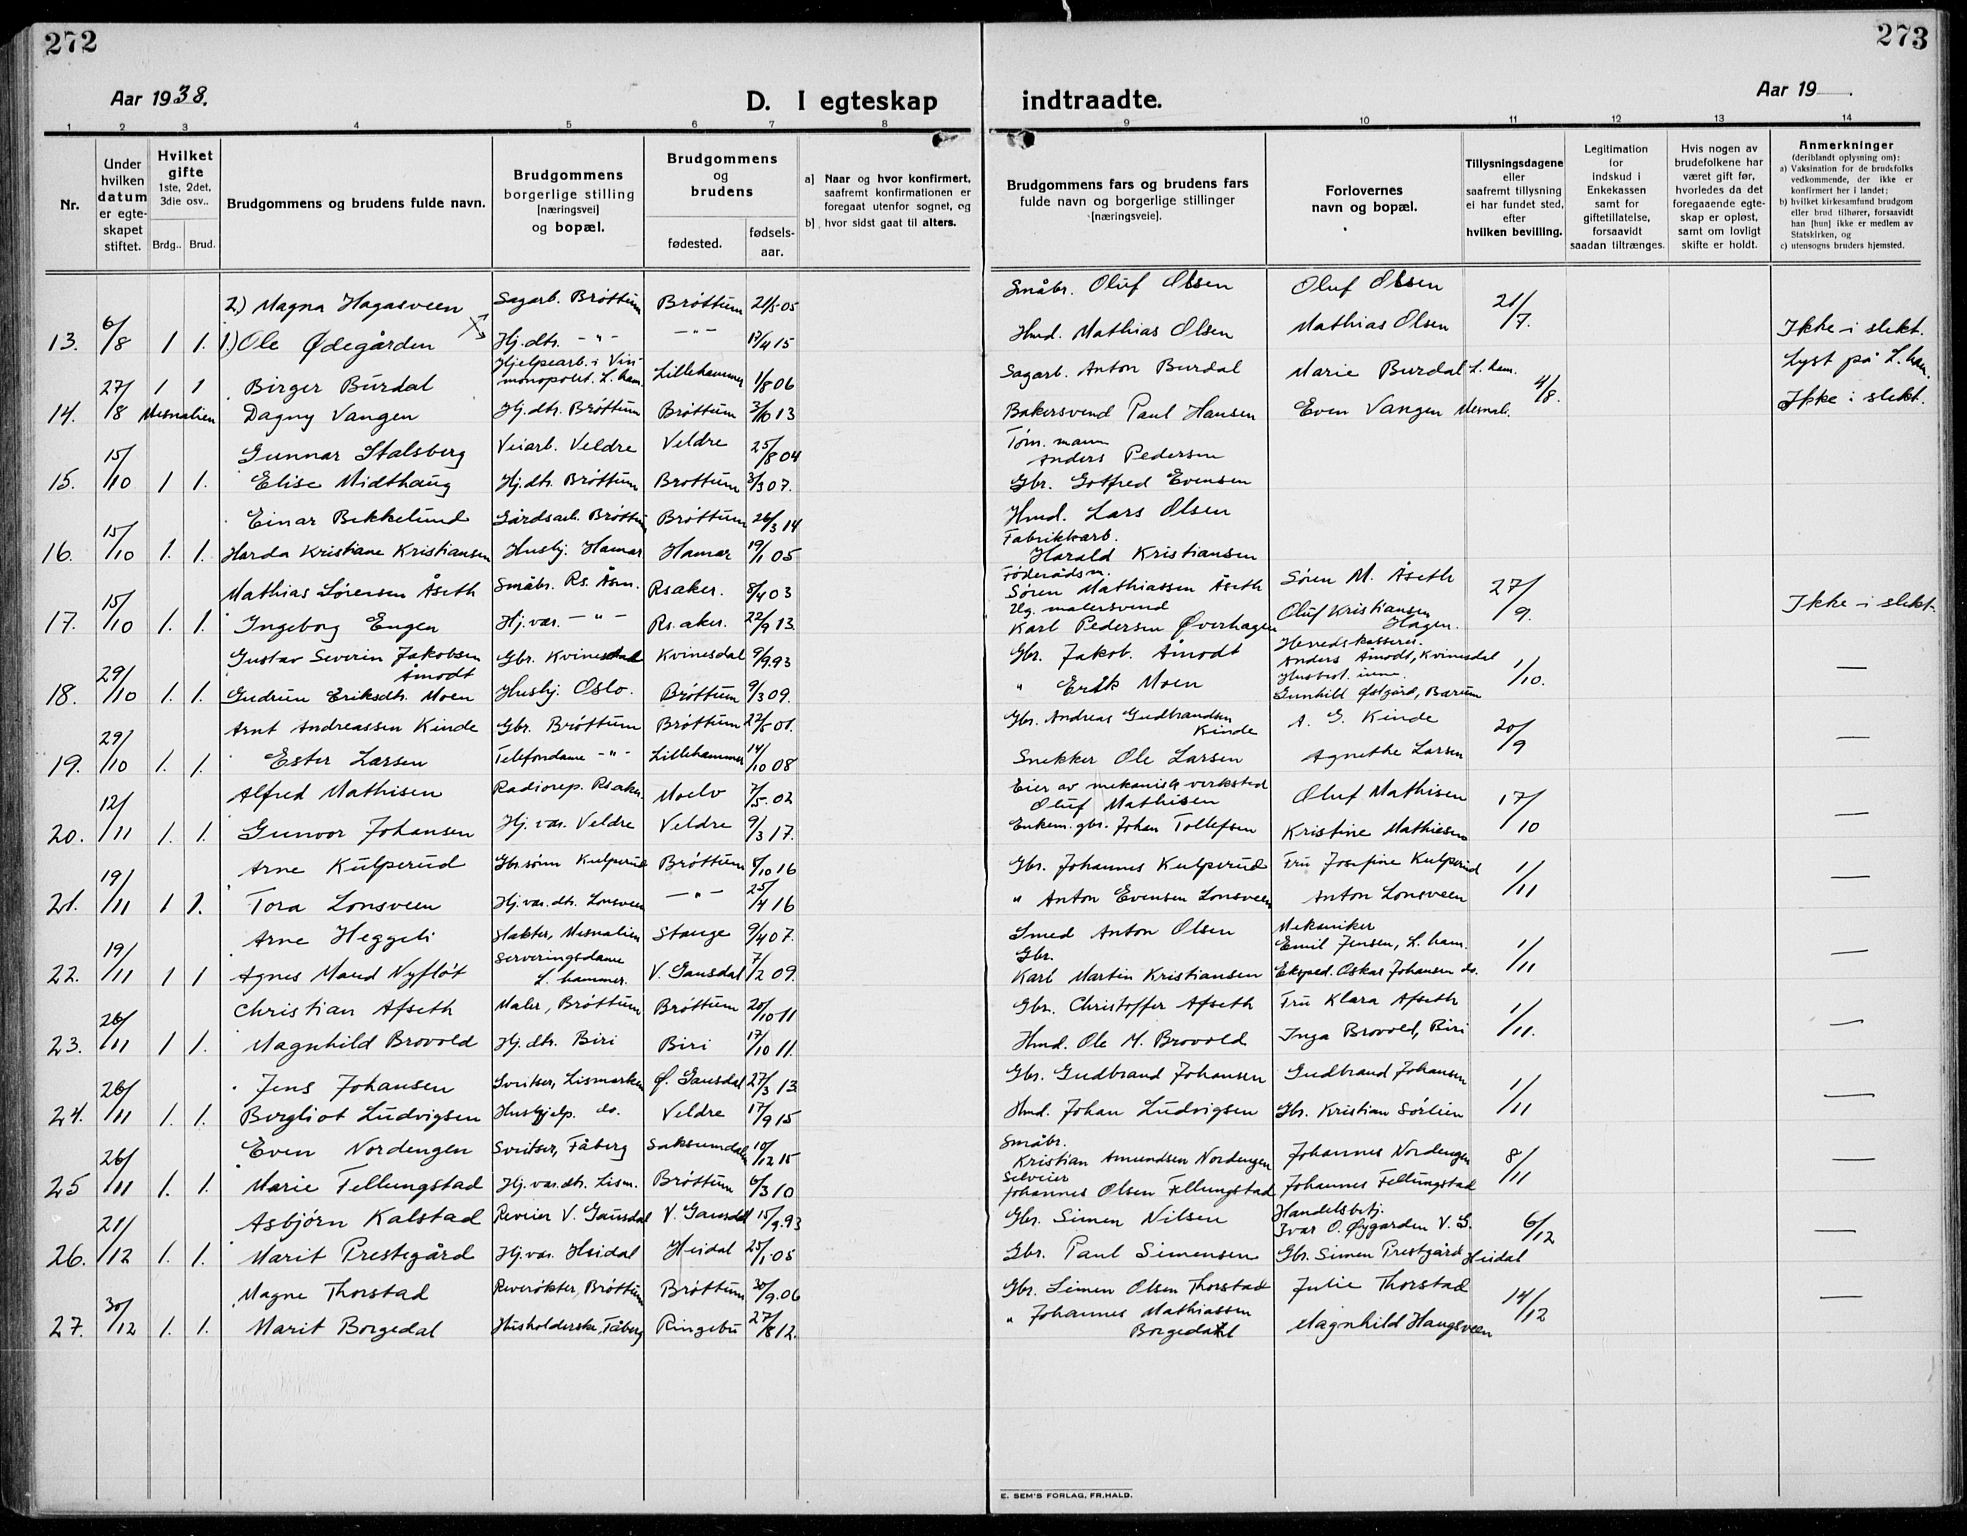 272
273
Aar 1938.
D. I egteskap
indtraadte.
Aar 19
1 2 3 4 5 6 7 8
9 10 11 12 13 14
Nr.
Under hvilken datum er egteskapet stiftet.
Hvilket gifte
1ste, 2det, 3die osv..
Brdg.. Brud.
Brudgommens og brudens fulde navn.
Brudgommens borgerlige stilling [næringsvei] og bopæl.
Brudgommens og brudens
fødested.
fødsels-aar.
a] Naar og hvor konfirmert, saafremt konfirmationen er foregaat utenfor sognet, og
b] hvor sidst gaat til alters.
Brudgommens fars og brudens fars fulde navn og borgerlige stillinger [næringsveie].
Forlovernes navn og bopæl.
Tillysningsdagene eller saafremt tillysning ei har fundet sted, efter hvilken bevilling.
Legitimation for indskud i Enkekassen samt for giftetillatelse, forsaavidt saadan tiltrænges.
Hvis nogen av brudefolkene har været gift før, hvorledes da det foregaaende egteskap er opløst, samt om lovligt skifte er holdt.
Anmerkninger
(deriblandt oplysning om):
a) Vaksination for de brudefolks vedkommende, der ikke er konfirmert her i landet;
b) hvilket kirkesamfund brudgom eller brud tilhører, forsaavidt han [hun] ikke er medlem av Statskirken, og
c) utensogns bruders hjemsted.
2) Magna Hagasveen Sagarb. Brøttum Brøttum 21/5 05 Småbr. Oluf Olsen Oluf Olsen 21/7
13. 6/8 1 1. 1.) Ole Ødegården Hj. dtr. -"- -"- 17/4 15 Hmd. Mathias Olsen Mathias Olsen Ikke i slekt.
27/8 1 1 Birger Burdal Hjelpearb. i Vinmonopolet. L. ham. Lillehammer 1/8 06 Sagarb. Anton Burdal Marie Burdal L. ham. 4/8. Lyst på L. ham.
14. Mesnalien Dagny Vangen Hj. dtr. Brøttum Brøttum 3/10 13 Bakersvend Paul Hansen Even Vangen Mesnal. Ikke i slekt.
15/10 Gunnar Stalsberg Veiarb. Veldre Veldre 25/8 04 Tøm. mann Anders Pedersen
15. 1 1. Elise Midthaug Hj. dtr. Brøttum Brøttum 3/3 07. Gbr. Gotfred Evensen
15/10 Einar Bekkelund Gårdsarb. Brøttum Brøttum 26/3 14 Hmd. Lars Olsen
16. 1. 1. Harda Kristiane Kristiansen Husbj. Hamar Hamar 19/1 05 Fabrikkarb. Harald Kristiansen
15/10 Mathias Sørensen Åseth Småbr. Rs. Åsm. Rsaker. 8/4 03 Føderådsm. Søren Mathiassen Åseth Søren M. Åseth 27/9.
17. 1. 1. Ingeborg Engen Hj. vær. -"- Rs. aker. 22/9 13. Ug. malersvend Karl Pedersen Øverhagen Oluf Kristiansen Hagen. Ikke i slekt.
29/10 Gustav Severin Jakobsen Åmodt Gbr. Kvinesdal Kvinesdal 9/9.93 Gbr. Jakob. Åmodt Herredskasserer. Anders Åmodt, Kvinesdal 1/10. —
18. 1. 1. Gudrun Eriksdtr. Moen Husbj. Oslo. Brøttum 9/3 09. " Erik Moen Gunhild Østgård, Bærum
29/10 Arnt Andreassen Kinde Gbr. Brøttum Brøttum 27/5 01. Gbr. Andreas Gudbrandsen Kinde A. G. Kinde 20/9 —
19. 1. 1. Ester Larsen Telefondame -"- Lillehammer 14/10 08 Snekker Ole Larsen Agnethe Larsen
12/11 Alfred Mathisen Radiorep. Rsaker. Moelv 7/5. 02 Eier av mekanisk verksted Oluf Mathisen Oluf Mathisen 17/10 —
20. 1. 1. Gunvor Johansen Hj. vær. Veldre Veldre 9/3 17. Enkem. gbr. Johan Tollefsen Kristine Mathiesen
19/11 Arne Kulperud Gbr. sønn Kulperud Brøttum 8/10 16 Gbr. Johannes Kulperud Fru Josefine Kulperud 1/11 —
21. 1 1. Tora Lonsveen Hj. vær. dtr. Lonsveen -"- 25/4 16 " Anton Evensen Lonsveen Anton Lonsveen
19/11 Arne Heggeli Vakter, Mesnalien Stange 9/4 07. Smed Anton Olsen Mekaniker Emil Jensen, L. ham. 1/11 —
22. 1 1 Agnes Maud Nyfløt Serveringsdame L. hammer. V. Gausdal 7/2 09. Gbr. Karl Martin Kristiansen Eksped. Oskar Johansen do.
26/11 Christian Afseth Maler, Brøttum Brøttum 20/10 11 Gbr. Christoffer Afseth Fru Klara Afseth 1/11. —
23. 1 1. Magnhild Brovold Hj. dtr. Biri Biri 17/10 11. Hmd. Ole M. Brovold Inga Brovold, Biri
26/11 Jens Johansen Sveitser, Lismarka Ø. Gausdal 27/3 13 Gbr. Gudbrand Johansen Gudbrand Johansen 1/11 —
24. 1. 1. Bergliot Ludvigsen Hushjelp. do. Veldre 17/9 15 Hmd. Johan Ludvigsen Gbr. Kristian Sørlien
26/11 Even Nordengen Sveitser, Fåberg Saksumdalen 10/12 15 Småbr. Kristian Amundsen Nordengen Johannes Nordengen 8/11 —
25 1. 1. Marie Fellungstad Hj. vær. dtr. Lism. Brøttum 6/3 10 Selveier Johannes Olsen Fellungstad Johannes Fellungstad
21/12 Asbjørn Kalstad Reveier V. Gausdal V. Gausdal 15/9.93 Gbr. Simen Nilsen Handelsbetj. Ivar O. Øygarden V. G. 6/12 —
26. 1. 1. Marit Prestegård Hj. vær. Heidal Heidal 25/1 05 Gbr. Paul Simensen Gbr. Simen Prestgård Heidal
30/12 Magne Thorstad Reverøkter, Brøttum Brøttum 30/9.06 Gbr. Simen Olsen Thorstad Julie Thorstad 14/12 —
27. 1. 1. Marit Borgedal Husholderske, Fåberg Ringebu 27/8 12. " Johannes Mathiassen Borgedal Magnhild Haugsveen
E. SEM'S FORLAG, FR.HALD.